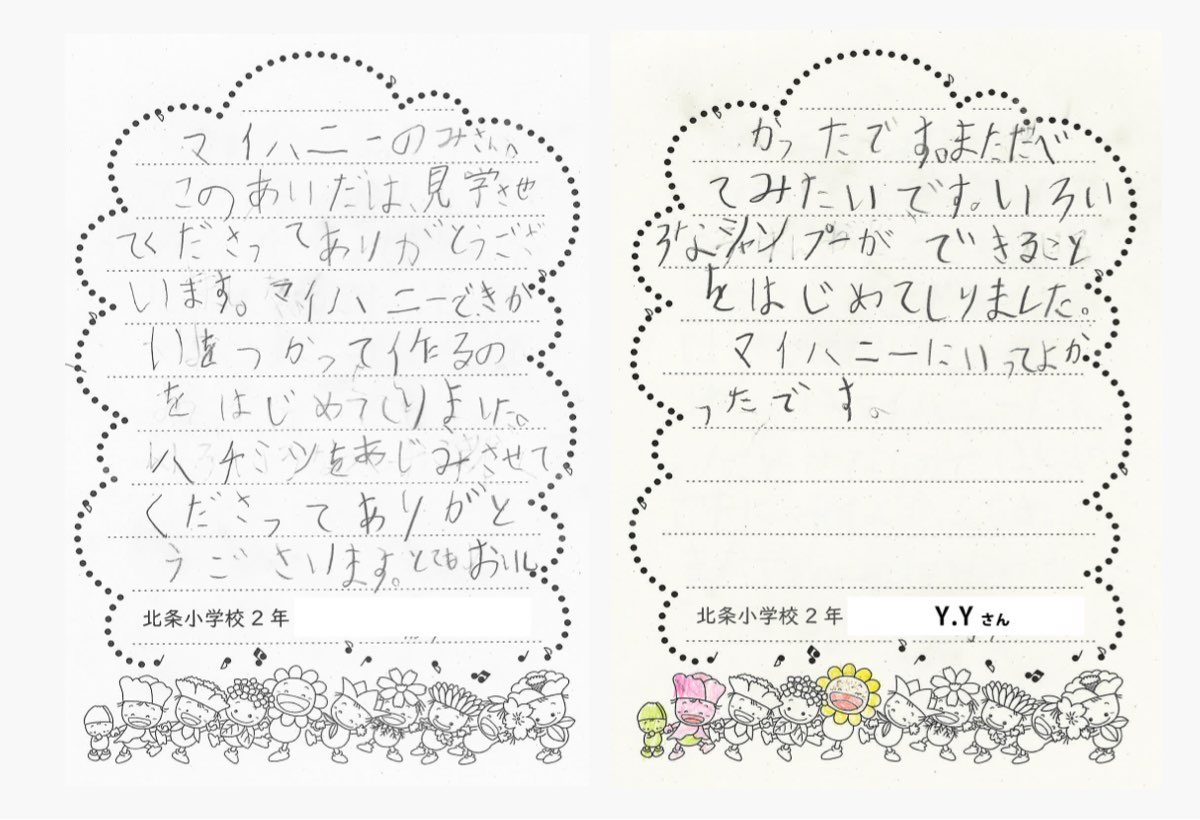 マイハニーのみさん。
このあいだは、見学させ
てくださってありがとうござ
います。マイハニーできか
いをつかって作るの
をはじめてしりました。
ハチミツをあじみさせて
くださってありがと
うございます。とてもおいし
北条小学校2年
かったです。またたべ
てみたいです。いろい
ろなシャンプーができること
をはじめてしりました。
マイハニーにいってよか
ったです。
北条小学校2年 Y.Yさん